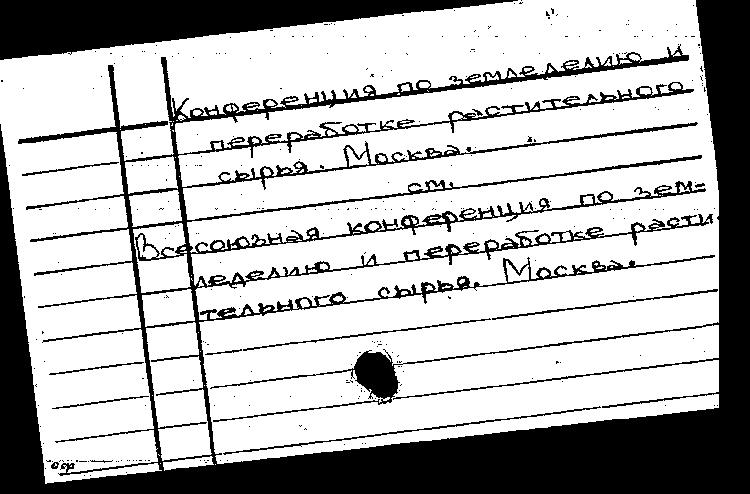 Конференция по земледелию и
переработке растительного
сырья. Москва.
см.
Всесоюзная конференция по зем-
леделию и переработке расти
тельного сырья. Москва.